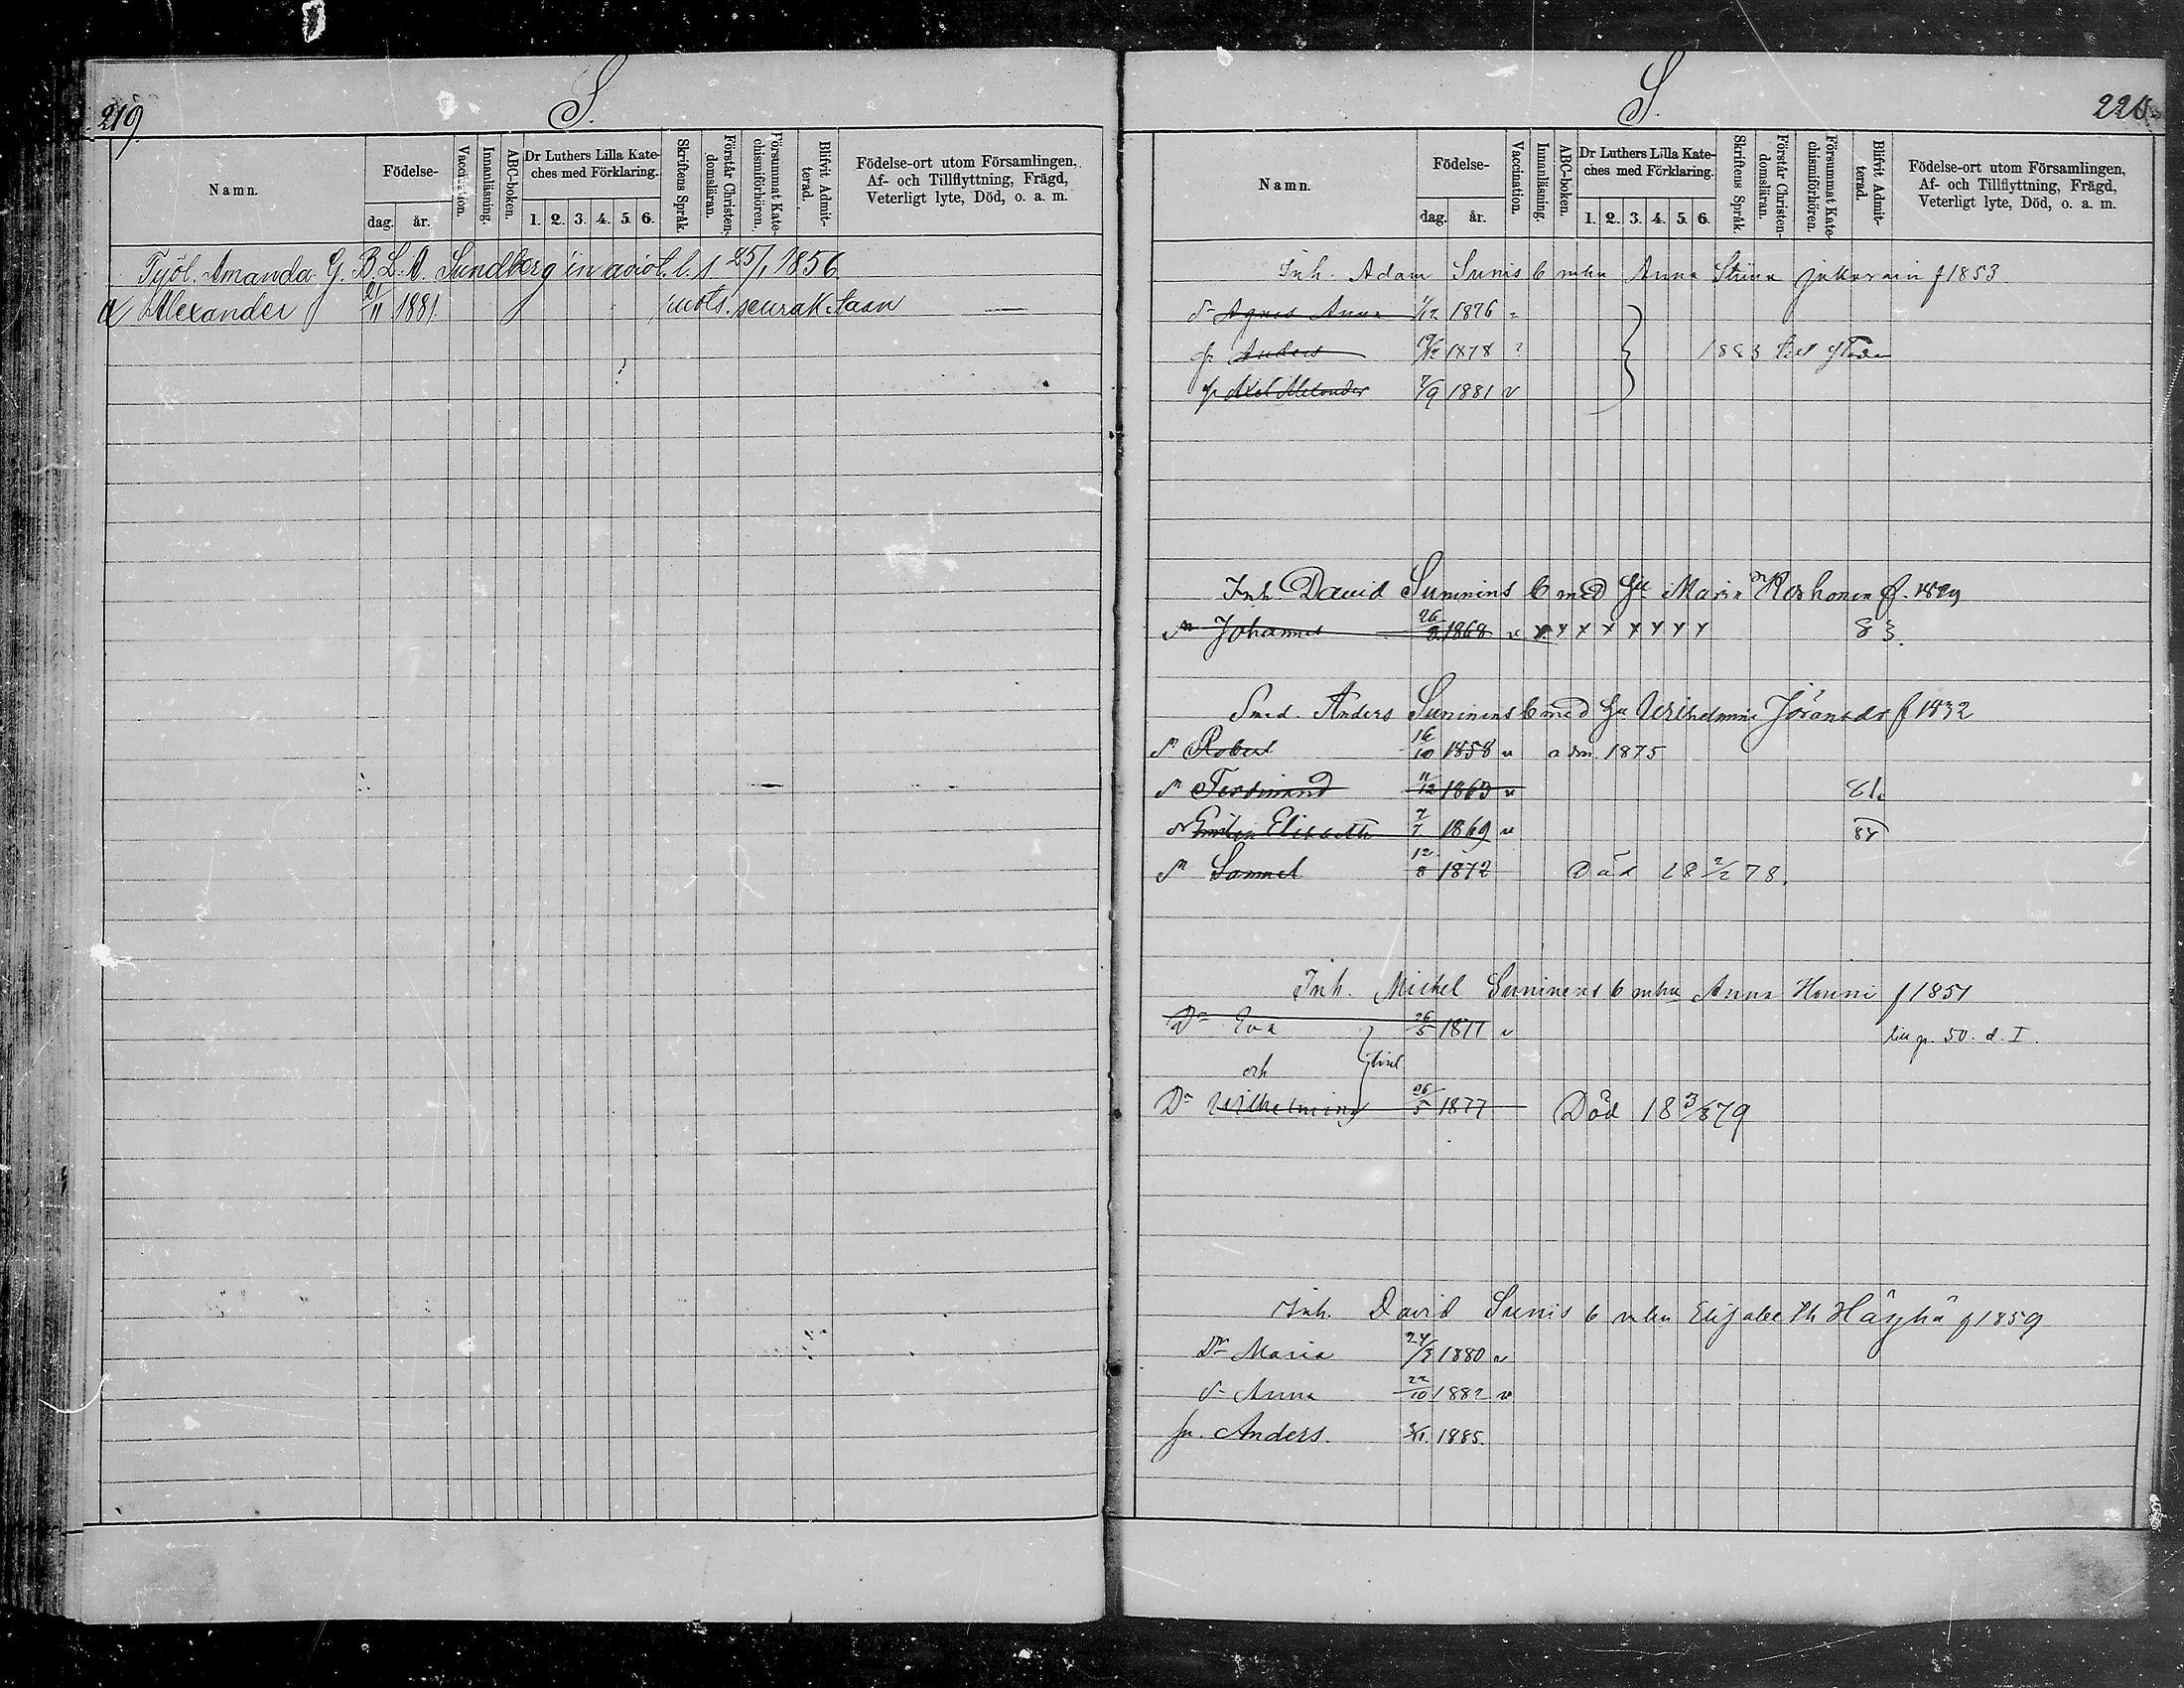 219.
S.
Namn.
Födelse-
dag. år.
Vaccination.
Innanläsning.
ABC-boken.
Dr Luthers Lilla Kate-
ches med Förklaring.
1. 2. 3. 4. 5. 6.
Skriftens Språk.
Förstår Christen-
domsläran.
Försummat Kate-
chismiförhören.
Blifvit Admit-
terad.
Födelse-ort utom Församlingen,
Af- och Tillflyttning, Frägd,
Veterligt lyte, Död, o. a. m.
Työl. Amanda G. B. L. A. Sundberg'in aviol. l. s 25/1 1856
Alexander 21/11 1881. ruots. seurak.
220.
S.
Namn.
Födelse-
dag. år.
Vaccination.
Innanläsning.
ABC-boken.
Dr Luthers Lilla Kate-
ches med Förklaring.
1. 2. 3. 4. 5. 6.
Skriftens Språk.
Förstår Christen-
domsläran.
Försummat Kate-
chismiförhören.
Blifvit Admit-
terad.
Födelse-ort utom Församlingen,
Af- och Tillflyttning, Frägd,
Veterligt lyte, Död, o. a. m.
Inh. Adam Sunis b mhu Anna Stiina f 1853
Agnes Anna 1/12 1876
Anders 1878 1883
Axel 7/9 1881 v
Inh. David Suninens b med hu Maria f.
sn Johannes 26/2 1868 v x x x x x x x x 83.
Smed. Anders Suninens b med hu Wilhelmina Jöransdr f 1832
sn Robert 16/10 1858 v adm. 1875
sn Ferdinand 11/12 1863 v 81.
Elisabeth 7/7 1869 v 84
sn Samuel 12/8 1872 Död 18 2/2 78.
Inh. Michel Suninens b mhu Anna f 1851
Dr Eva 26/5 1877 v 50. d. I.
och
Dr Wilhelmina 26/5 1877 Död 18 3/8 79
Inh. David Sunis b mhu Elisabeth Häyhä f 1859
Dr Maria 1880 v
Anna 22/10 1882 v
Anders. 1885.